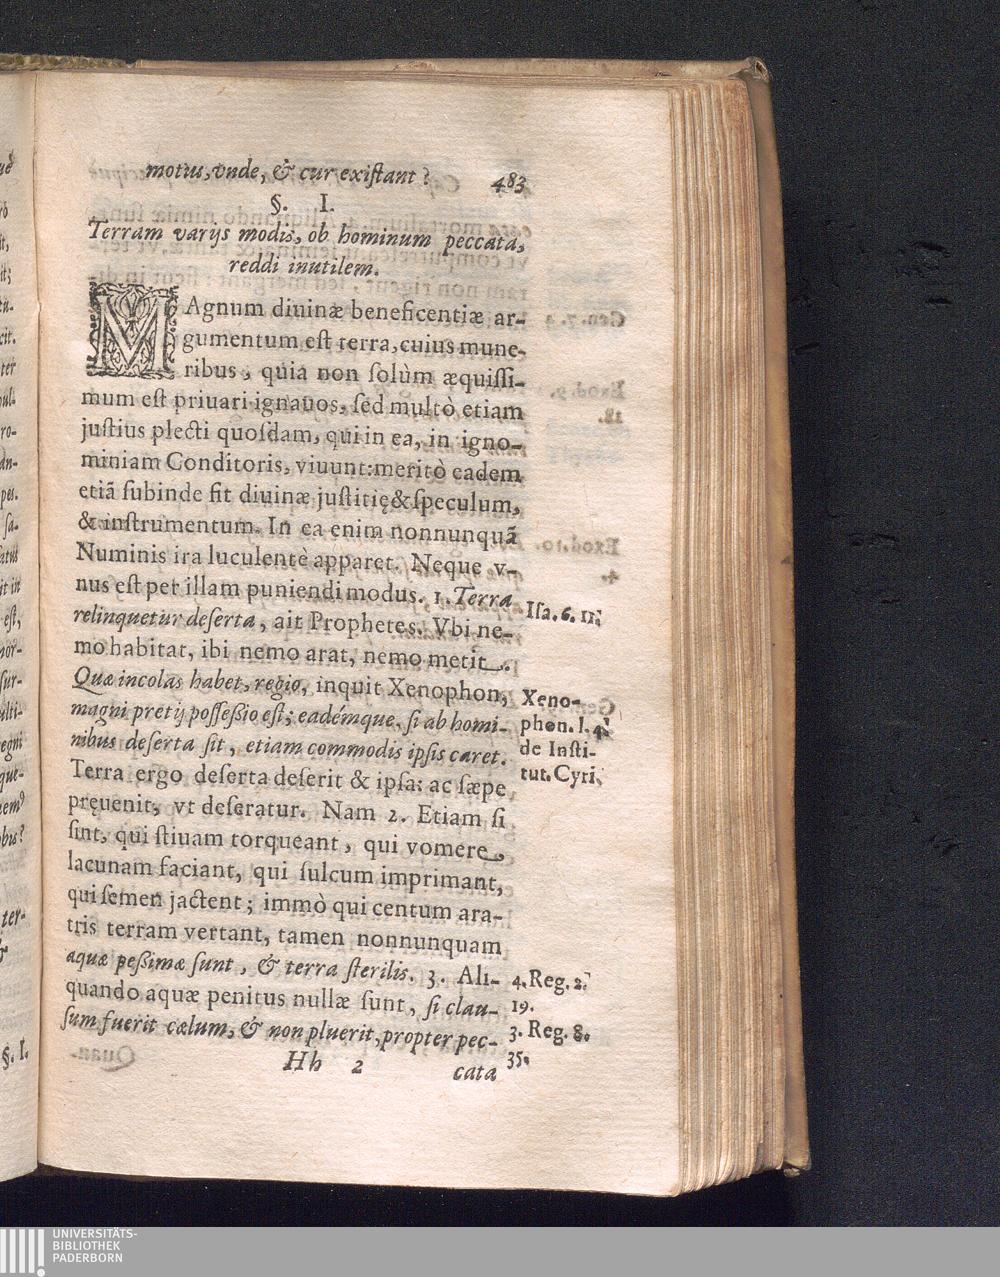 motus, vnde, & cur existant? 483
§. I.
Terram varijs modis, ob hominum peccata,
reddi inutilem.
MAgnum diuinæ beneficentiæ ar-
gumentum est terra, cuius mune-
ribus, quia non solùm æquissi-
mum est priuari ignauos, sed multò etiam
justius plecti quosdam, qui in ea, in igno-
miniam Conditoris, viuunt: meritò eadem
etiã subinde fit diuinæ justitię & speculum,
& instrumentum. In ea enim nonnunquã
Numinis ira luculentè apparet. Neque v-
nus est per illam puniendi modus. 1. Terra
relinquetur deserta, ait Prophetes. Vbi ne-
mo habitat, ibi nemo arat, nemo metit.
Quæ incolas habet, regio, inquit Xenophon,
magni pretij possessio est; eadémque, si ab homi-
nibus deserta sit, etiam commodis ipsis caret.
Terra ergo deserta deserit & ipsa: ac sæpe
pręuenit, vt deseratur. Nam 2. Etiam si
sint, qui stiuam torqueant, qui vomere,
lacunam faciant, qui sulcum imprimant,
qui semen jactent; immò qui centum ara-
tris terram vertant, tamen nonnunquam
aquæ pessimæ sunt, & terra sterilis. 3. Ali-
quando aquæ penitus nullæ sunt, si clau-
sum fuerit cælum, & non pluerit, propter pec-
Hh 2 cata
Isa. 6. 11.
Xeno-
phon. l. 4.
de Insti-
tut. Cyri.
4. Reg. 2.
19.
3. Reg. 8.
35.
§. I.
UNIVERSITÄTS-
BIBLIOTHEK
PADERBORN